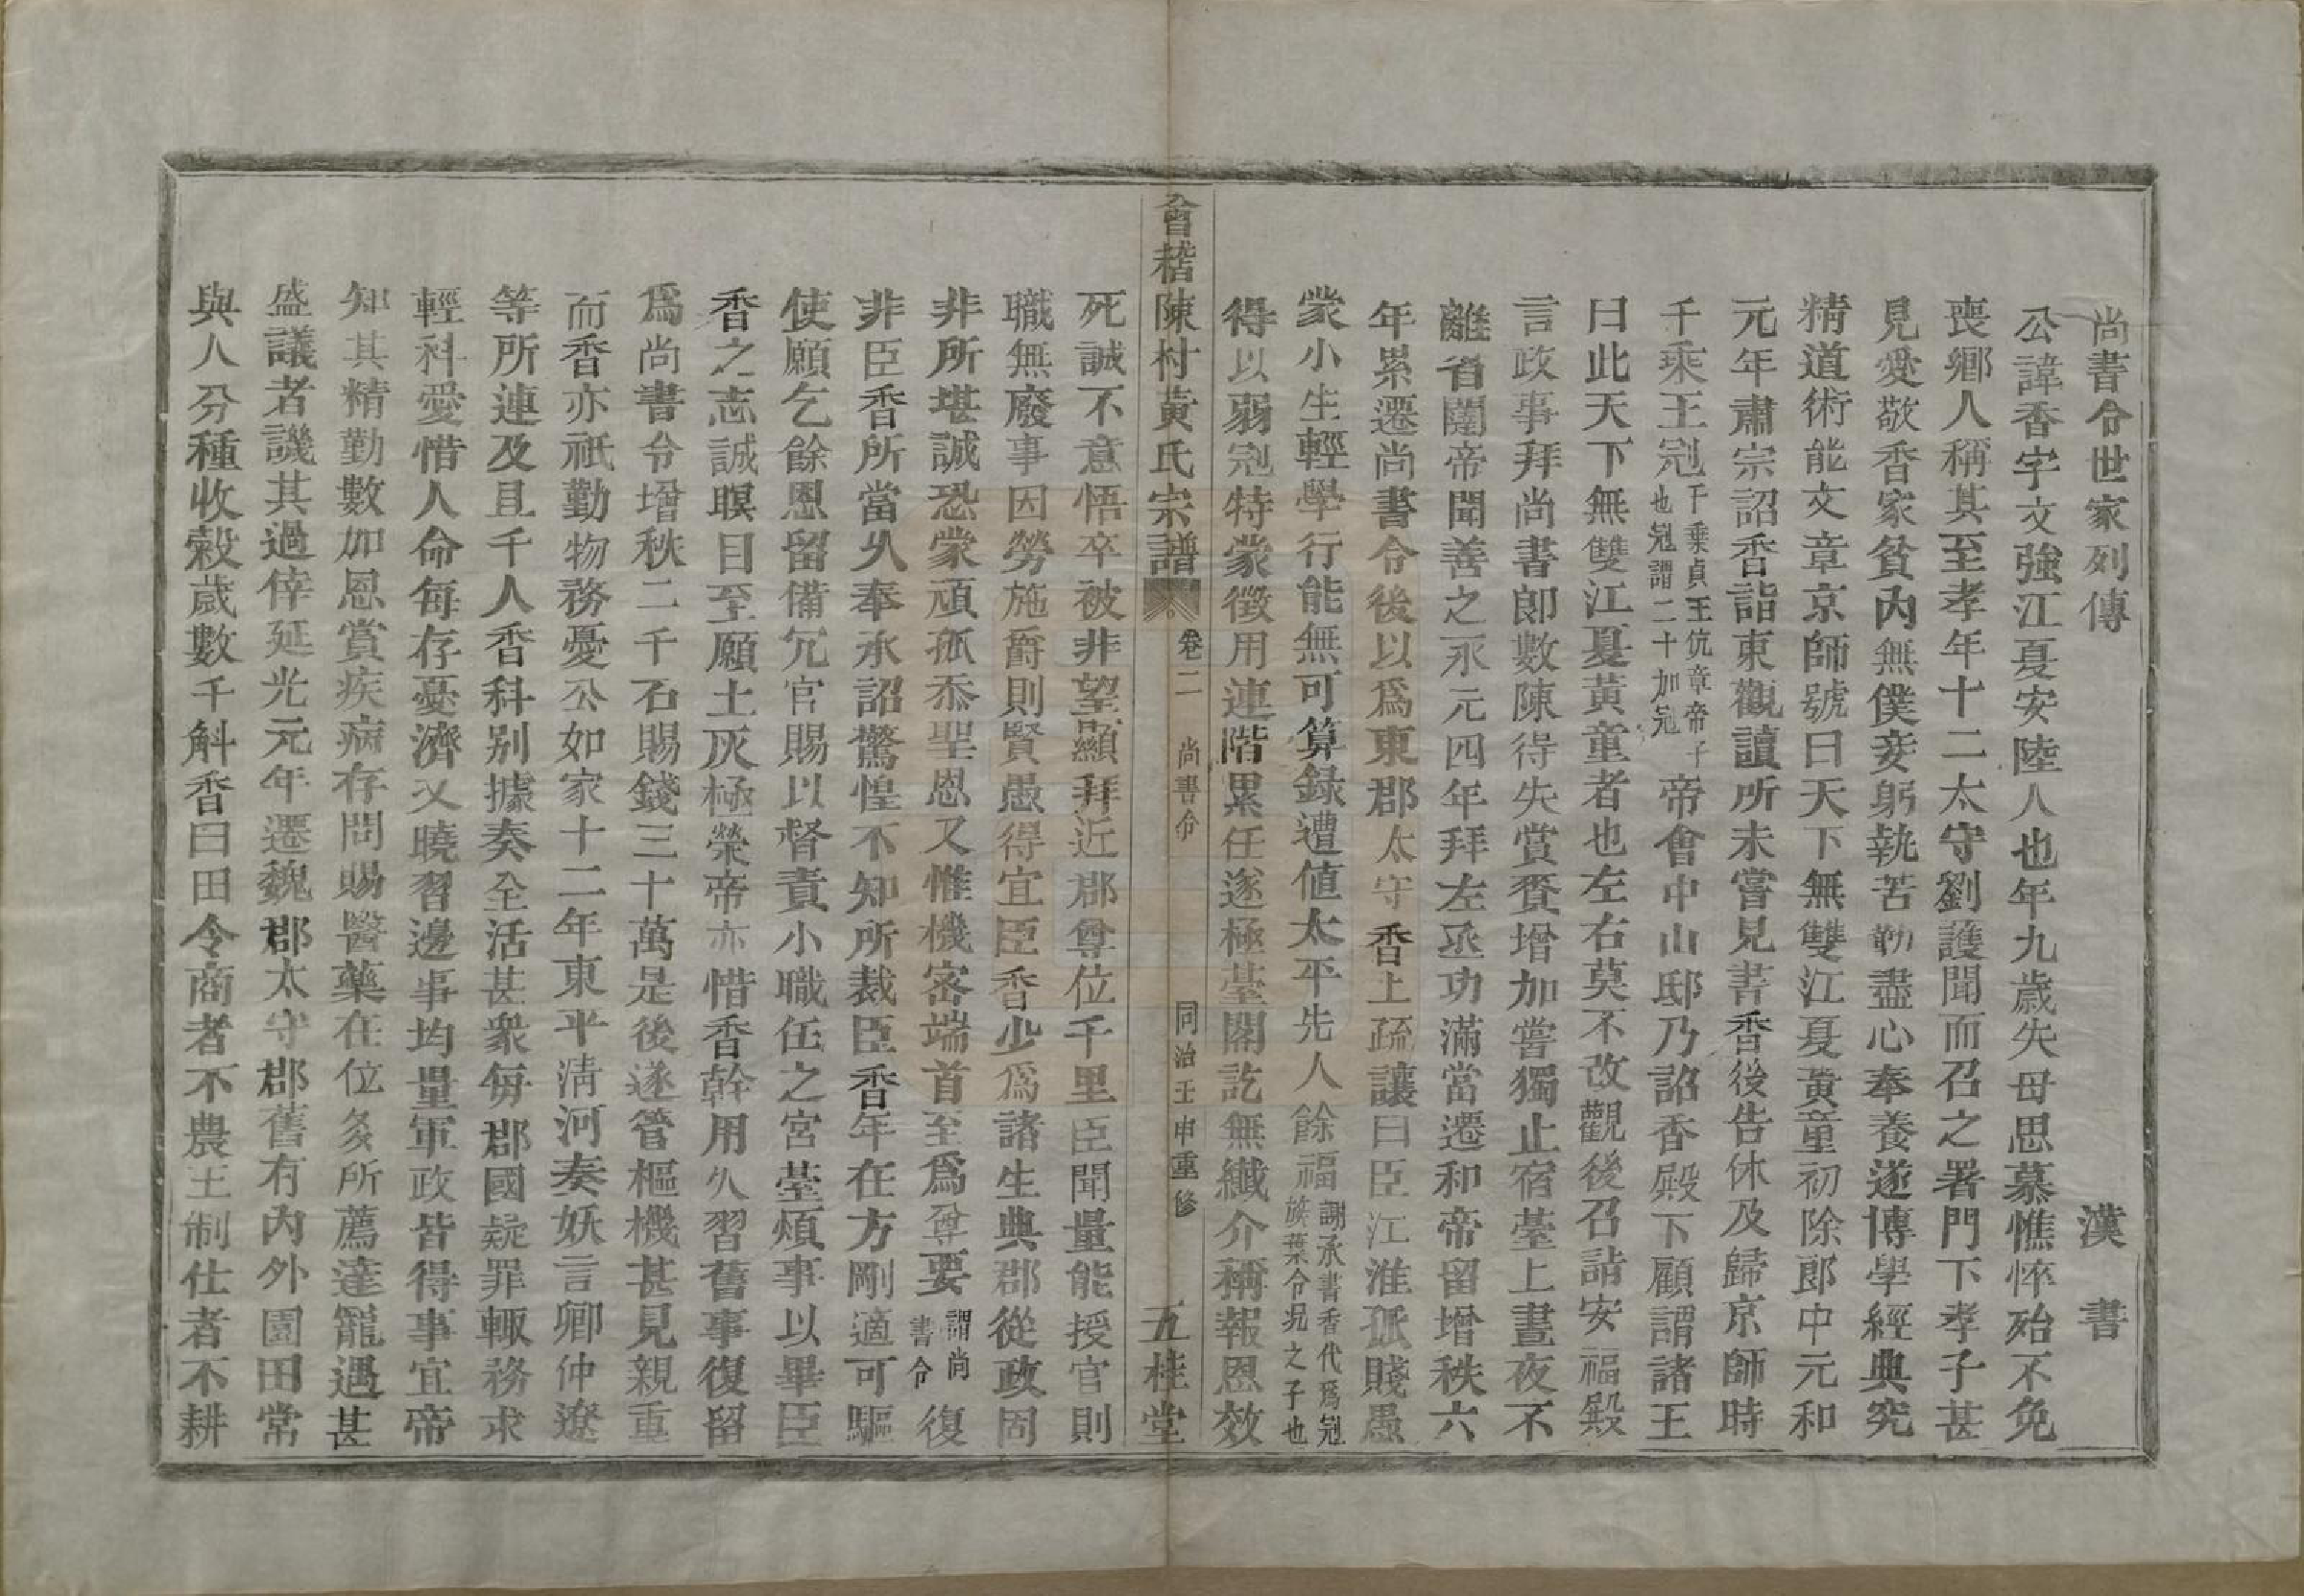 尚書令世家列傳　漢書
公諱香字文強江夏安陸人也年九歲失母思慕憔悴殆不免
喪鄉人稱其至孝年十二太守劉護聞而召之署門下孝子甚
見愛敬香家貧內無僕妾躬執苦勤盡心奉養遂博學經典究
精道術能文章京師號曰天下無雙江夏黃童初除郎中元和
元年肅宗詔香詣東觀讀所未嘗見書香後告休及歸京師時
千乘王冠千乘貞王伉章帝子也冠謂二十加冠帝會中山邸乃詔香殿下顧謂諸王
曰此天下無雙江夏黃童者也左右莫不改觀後召詣安福殿
言政事拜尚書郎數陳得失賞賚增加嘗獨止宿臺上晝夜不
離省闥帝聞善之永元四年拜左丞功滿當遷和帝留增秩六
年累遷尚書令後以為東郡太守香上疏讓曰臣江淮孤賤愚
蒙小生輕學行能無可算録遭值太平先人餘福謝承書香代為冠族葉令况之子也
得以弱冠特蒙徵用連階累任遂極臺閣訖無纖介稱報恩效
會稽陳村黃氏宗譜　卷二　尚書令　同治壬申重修　五桂堂
死誠不意悟卒被非望顯拜近郡尊位千里臣聞量能授官則
職無廢事因勞施爵則賢愚得宜臣香少為諸生典郡從政固
非所堪誠恐蒙頑孤忝聖恩又惟機密端首至為尊要謂尚書令復
非臣香所當久奉承詔驚惶不知所裁臣香年在方剛適可驅
使願乞餘恩留備冗官賜以督責小職任之宮臺煩事以畢臣
香之志誠瞑目至願土灰極榮帝亦惜香幹用久習舊事復留
為尚書令增秩二千石賜錢三十萬是後遂管樞機甚見親重
而香亦祇勤物務憂公如家十二年東平清河奏妖言卿仲遼
等所連及且千人香科別據奏全活甚衆每郡國疑罪輒務求
輕科愛惜人命每存憂濟又曉習邊事均量軍政皆得事宜帝
知其精勤數加恩賞疾病存問賜醫藥在位多所薦達寵遇甚
盛議者譏其過倖延光元年遷魏郡太守郡舊有內外園田常
與人分種收穀歲數千斛香曰田令商者不農王制仕者不耕